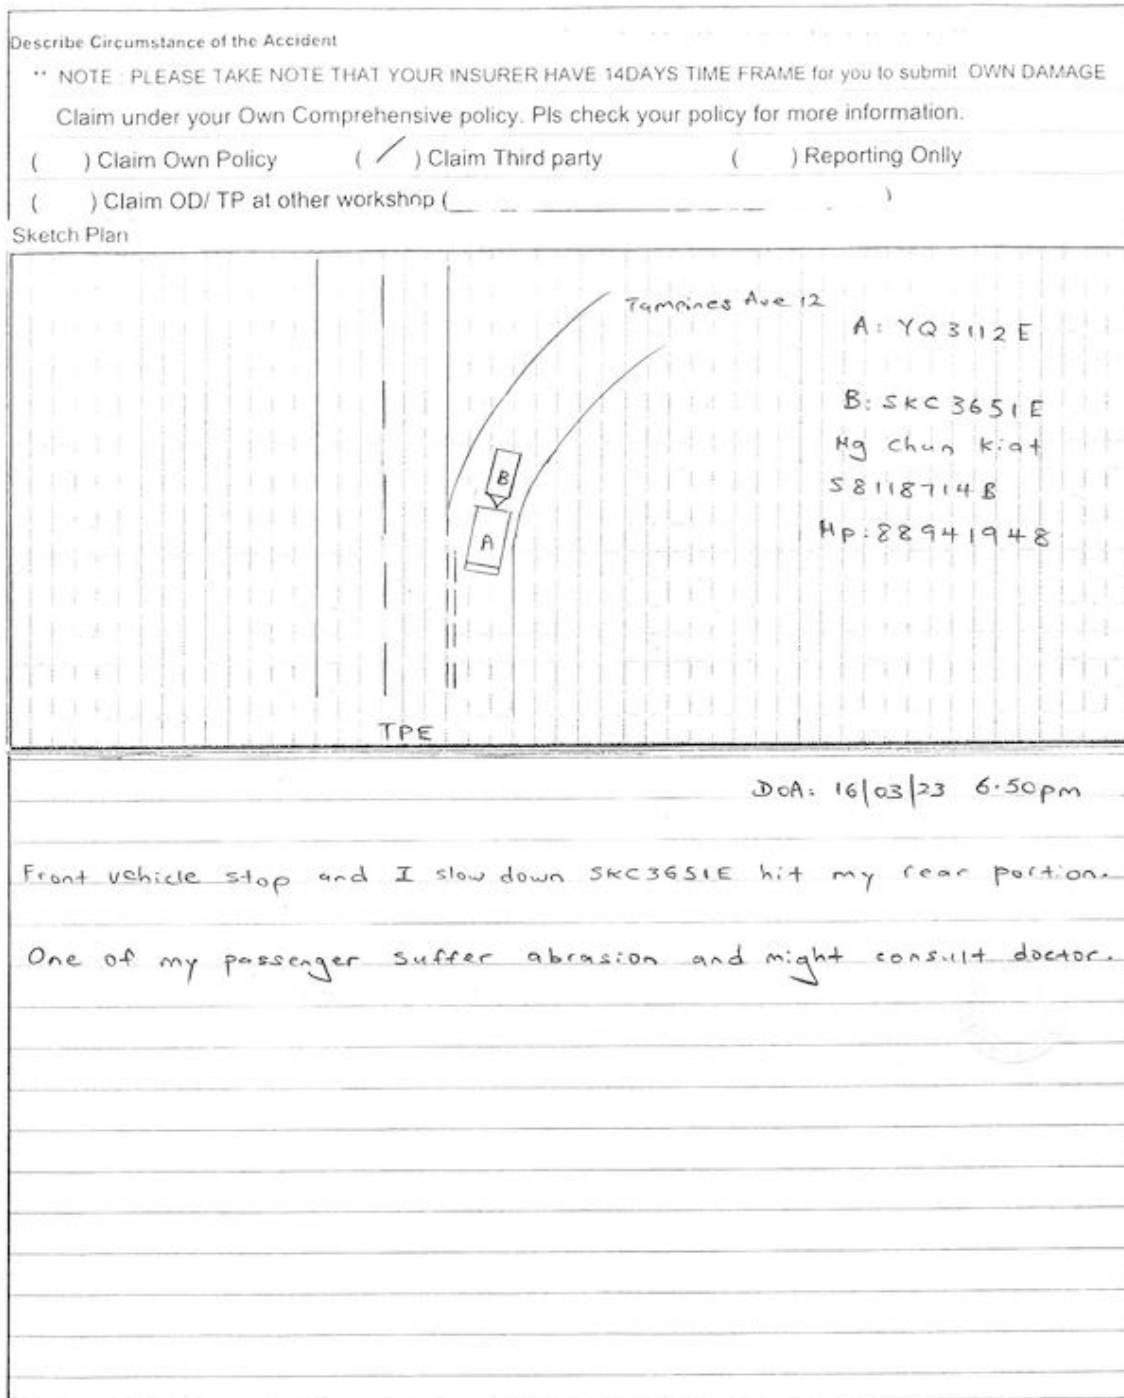 Describe Circumstance of the Accident
** NOTE : PLEASE TAKE NOTE THAT YOUR INSURER HAVE 14DAYS TIME FRAME for you to submit OWN DAMAGE
Claim under your Own Comprehensive policy. Pls check your policy for more information.
( ) Claim Own Policy ( / ) Claim Third party ( ) Reporting Onlly
( ) Claim OD/ TP at other workshop ( )
Sketch Plan
Tampines Ave 12
A: YQ3112E
B: SKC3651E
Ng Chun Kiat
S8118714B
Hp: 88941948
B
A
TPE
DOA: 16/03/23 6.50pm
Front vehicle stop and I slow down SKC3651E hit my rear portion.
One of my passenger suffer abrasion and might consult doctor.